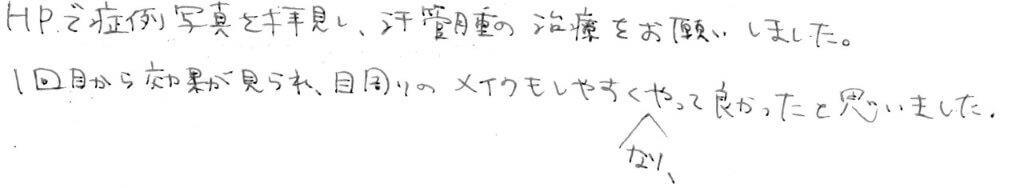 HP.で症例写真を拝見し、汗管腫の治療をお願いしました。
1回目から効果が見られ、目周りのメイクもしやすくやって良かったと思いました.
なり、